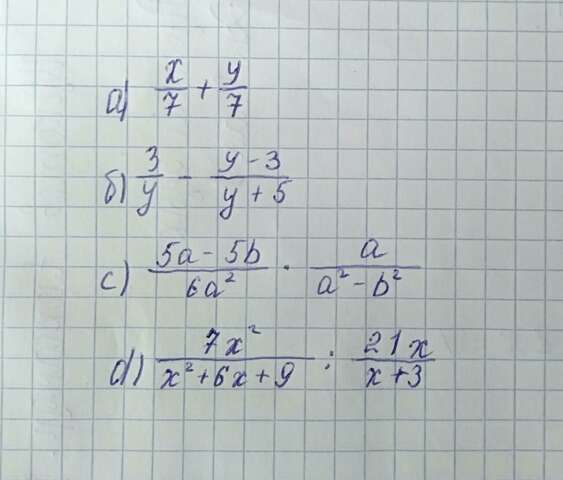 а) x/7 + y/7
б) 3/y - (y-3)/(y+5)
c) (5a-5b)/(6a²) · a/(a²-b²)
d) (7x²)/(x²+6x+9) : (21x)/(x+3)